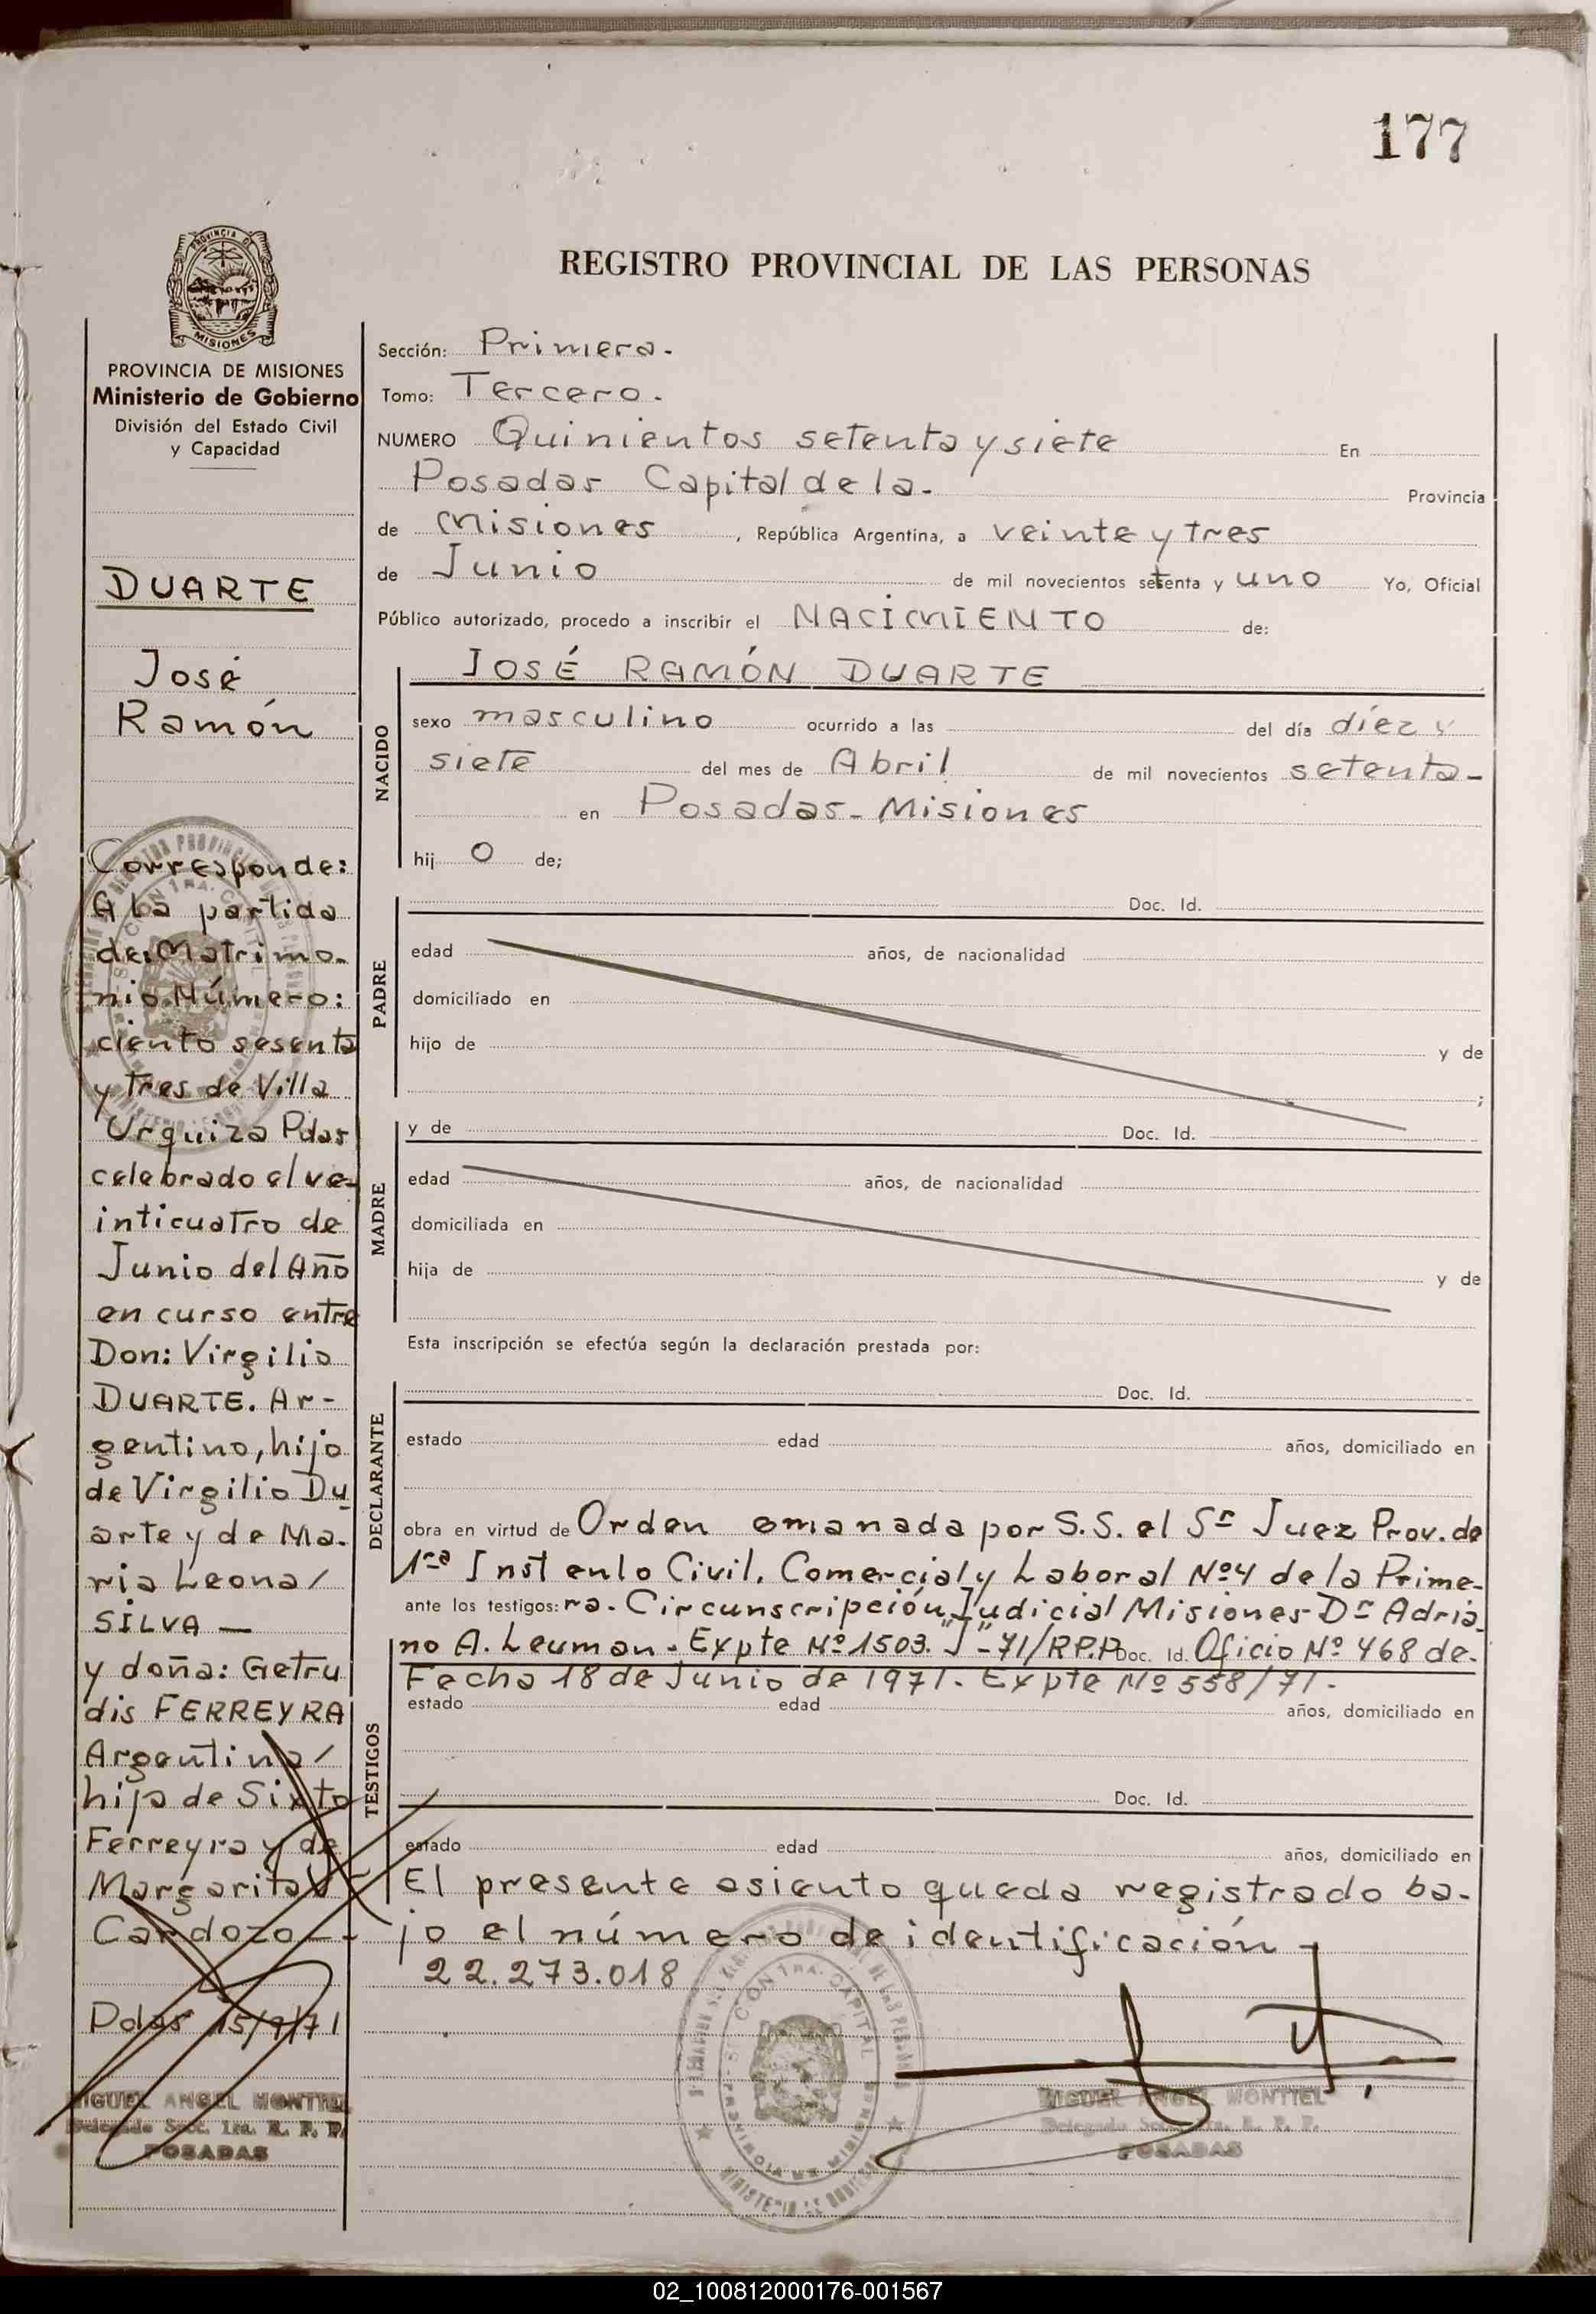 177
PROVINCIA DE
MISIONES
REGISTRO PROVINCIAL DE LAS PERSONAS
PROVINCIA DE MISIONES
Ministerio de Gobierno
División del Estado Civil
y Capacidad
DUARTE
José
Ramón
Corresponde:
A la partida
de: Matrimo-
nio Número:
ciento sesenta
y tres de Villa
Urquiza Pdas
celebrado el ve-
inticuatro de
Junio del Año
en curso entre
Don: Virgilio
DUARTE. Ar-
gentino, hijo
de Virgilio Du
arte y de Ma-
ria Leona/
SILVA —
y doña: Getru
dis FERREYRA
Argentina/
hija de Sixto
Ferreyra y de
Margarita
Cardozo —
Pdas 15/9/71
MIGUEL ANGEL MONTIEL
Delegado Secc. 1ra. R. P. P.
POSADAS
Sección: Primera.
Tomo: Tercero.
NUMERO Quinientos setenta y siete En
Posadas Capital de la. Provincia
de Misiones, República Argentina, a veinte y tres
de Junio de mil novecientos setenta y uno Yo, Oficial
Público autorizado, procedo a inscribir el NACIMIENTO de:
NACIDO
JOSÉ RAMÓN DUARTE
sexo masculino ocurrido a las del día diez y
siete del mes de Abril de mil novecientos setenta-
en Posadas - Misiones
hij o de;
PADRE
Doc. Id.
edad años, de nacionalidad
domiciliado en
hijo de y de
;
MADRE
y de Doc. Id.
edad años, de nacionalidad
domiciliada en
hija de y de
Esta inscripción se efectúa según la declaración prestada por:
DECLARANTE
Doc. Id.
estado edad años, domiciliado en
obra en virtud de Orden emanada por S.S. el Sr Juez Prov. de
1ra Inst en lo Civil, Comercial y Laboral Nº4 de la Prime-
ante los testigos: ra. Circunscripción Judicial Misiones Dr Adria
no A. Leuman. Expte Nº 1503. "J"-71/R.P.P. Doc. Id. Oficio Nº 468 de.
Fecha 18 de Junio de 1971. Expte Nº 558/71.
TESTIGOS
estado edad años, domiciliado en
Doc. Id.
estado edad años, domiciliado en
El presente asiento queda registrado ba-
jo el número de identificación
22.273.018
MIGUEL ANGEL MONTIEL
Delegado Secc. 1ra. R. P. P.
POSADAS
02_100812000176-001567